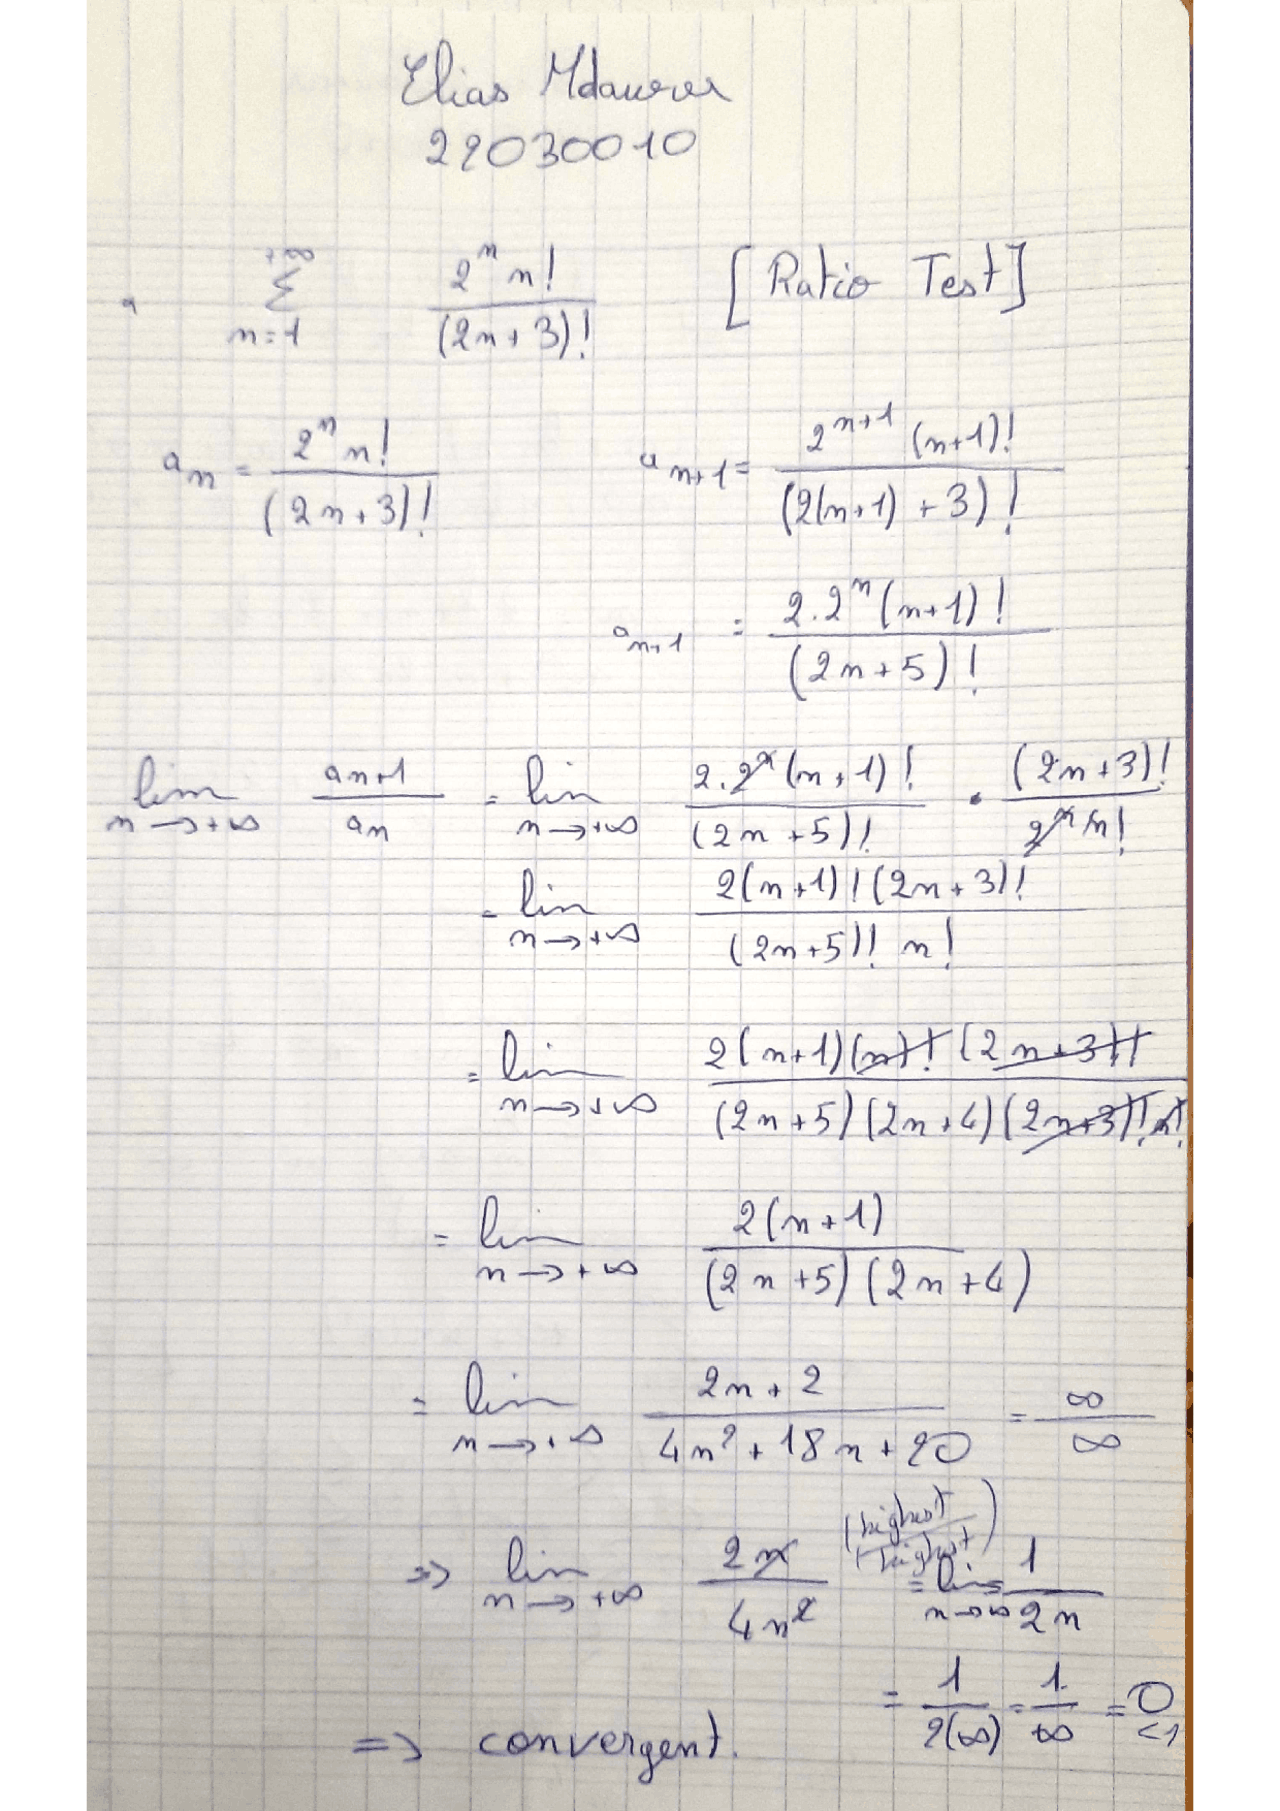 Elias Mdawar
22030010
+∞ Σ n=1 2^n n! / (2n+3)! [Ratio Test]
a_n = 2^n n! / (2n+3)! a_{n+1} = 2^{n+1} (n+1)! / (2(n+1)+3)!
a_{n+1} = 2.2^n (n+1)! / (2n+5)!
lim n→+∞ a_{n+1} / a_n = lim n→+∞ 2.2^n (n+1)! / (2n+5)! • (2n+3)! / 2^n n!
= lim n→+∞ 2(n+1)! (2n+3)! / (2n+5)! n!
= lim n→+∞ 2(n+1)(n)! (2n+3)! / (2n+5)(2n+4)(2n+3)! n!
= lim n→+∞ 2(n+1) / (2n+5)(2n+4)
= lim n→+∞ 2n+2 / 4n²+18n+20 = ∞/∞
=> lim n→+∞ 2n / 4n² (highest / highest) = lim n→∞ = 1 / 2n
= 1 / 2(∞) = 1 / +∞ = 0 <1
=> convergent.